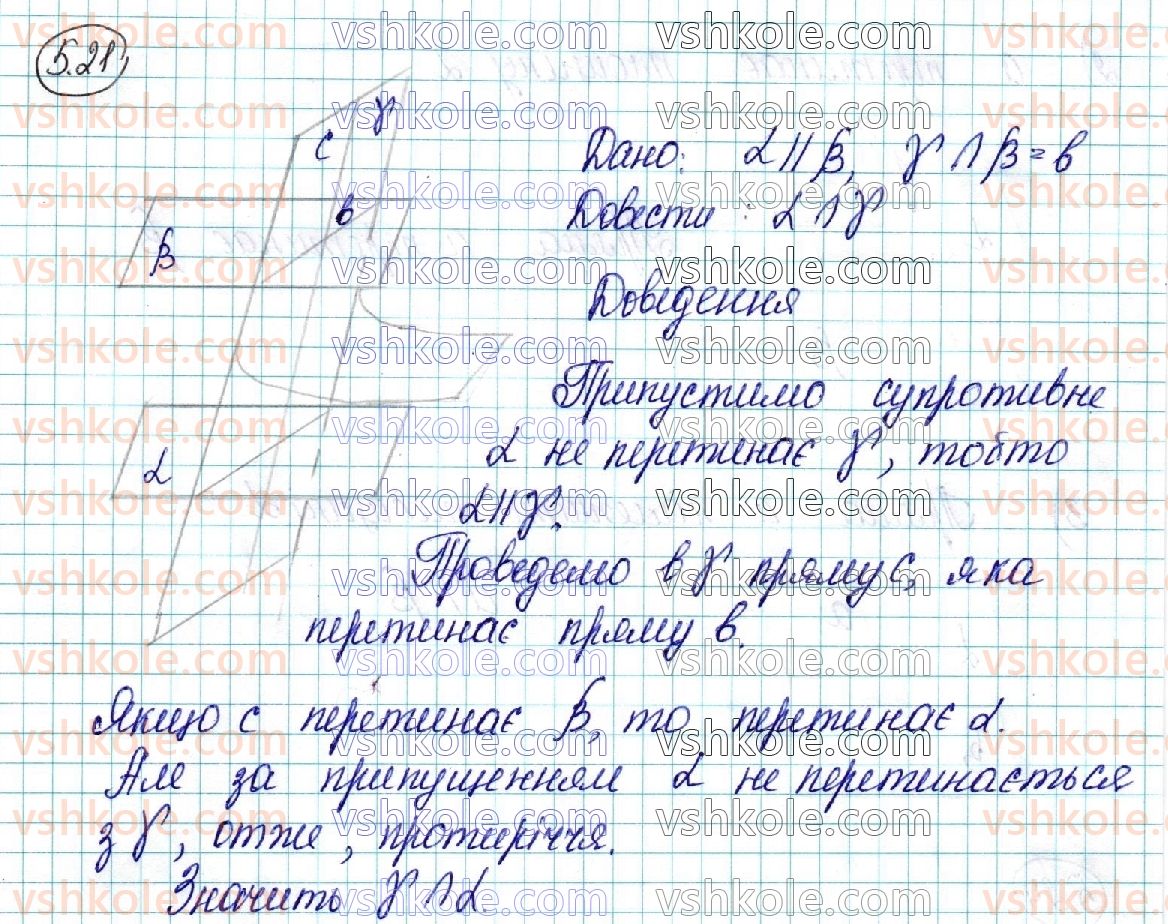 5.21,
c
γ
b
β
α
Дано: α || β, γ ∩ β = b
Довести: α ∩ γ
Доведення
Припустимо супротивне
α не перетинає γ, тобто
α || γ.
Проведемо в γ пряму c, яка
перетинає пряму b.
Якщо c перетинає β, то перетинає α.
Але за припущенням α не перетинається
з γ, отже, протиріччя.
Значить γ ∩ α.
vshkole.com